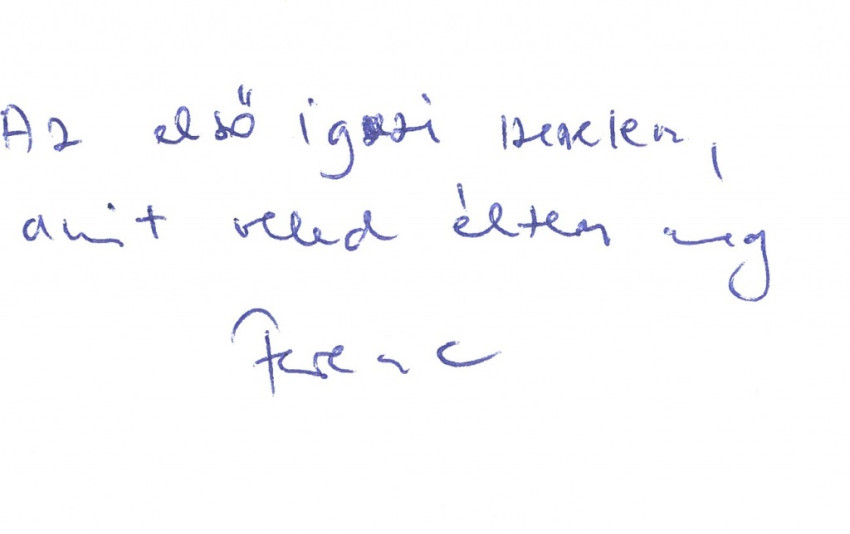 Az első igazi szerelem,
amit veled éltem meg
Ferenc